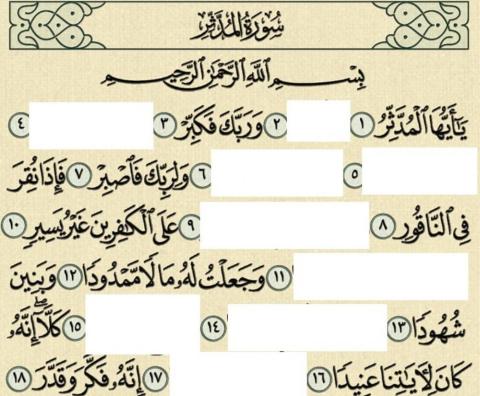 سُورَةُ المُدَّثِّرِ
بِسْمِ ٱللَّهِ ٱلرَّحْمَٰنِ ٱلرَّحِيمِ
يَٰٓأَيُّهَا ٱلْمُدَّثِّرُ ١ ٢ وَرَبَّكَ فَكَبِّرْ ٣ ٤
٥ ٦ وَلِرَبِّكَ فَٱصْبِرْ ٧ فَإِذَا نُقِرَ
فِى ٱلنَّاقُورِ ٨ ٩ عَلَى ٱلْكَٰفِرِينَ غَيْرُ يَسِيرٍ ١٠
١١ وَجَعَلْتُ لَهُۥ مَالًا مَّمْدُودًا ١٢ وَبَنِينَ
شُهُودًا ١٣ ١٤ ١٥ كَلَّآ إِنَّهُۥ
كَانَ لِءَايَٰتِنَا عَنِيدًا ١٦ ١٧ إِنَّهُۥ فَكَّرَ وَقَدَّرَ ١٨